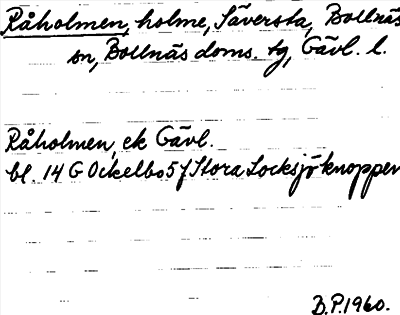 Råholmen, holme, Säversta, Bollnäs
sn, Bollnäs doms. tg, Gävl. l.
Råholmen, ek Gävl.
bl. 14 G Ockelbo 5 f Stora Locksjöknoppen
B.P. 1960.